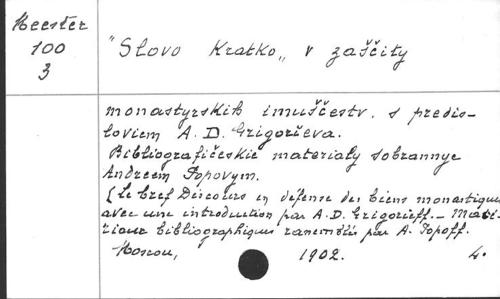 Meester
100
3
"Slovo Kratko„ v zaščity
monastyrskih imuščestv. s predis-
loviem A. D. Grigorieva.
Bibliografičeskie materialy sobrannye
Andreem Popovym.
(Le bref Discours en défense des biens monastiques
avec une introduction par A. D. Grigorieff. — Maté-
riaux bibliographiques rassemblés par A. Popoff.
Moscou, 1902. 4.